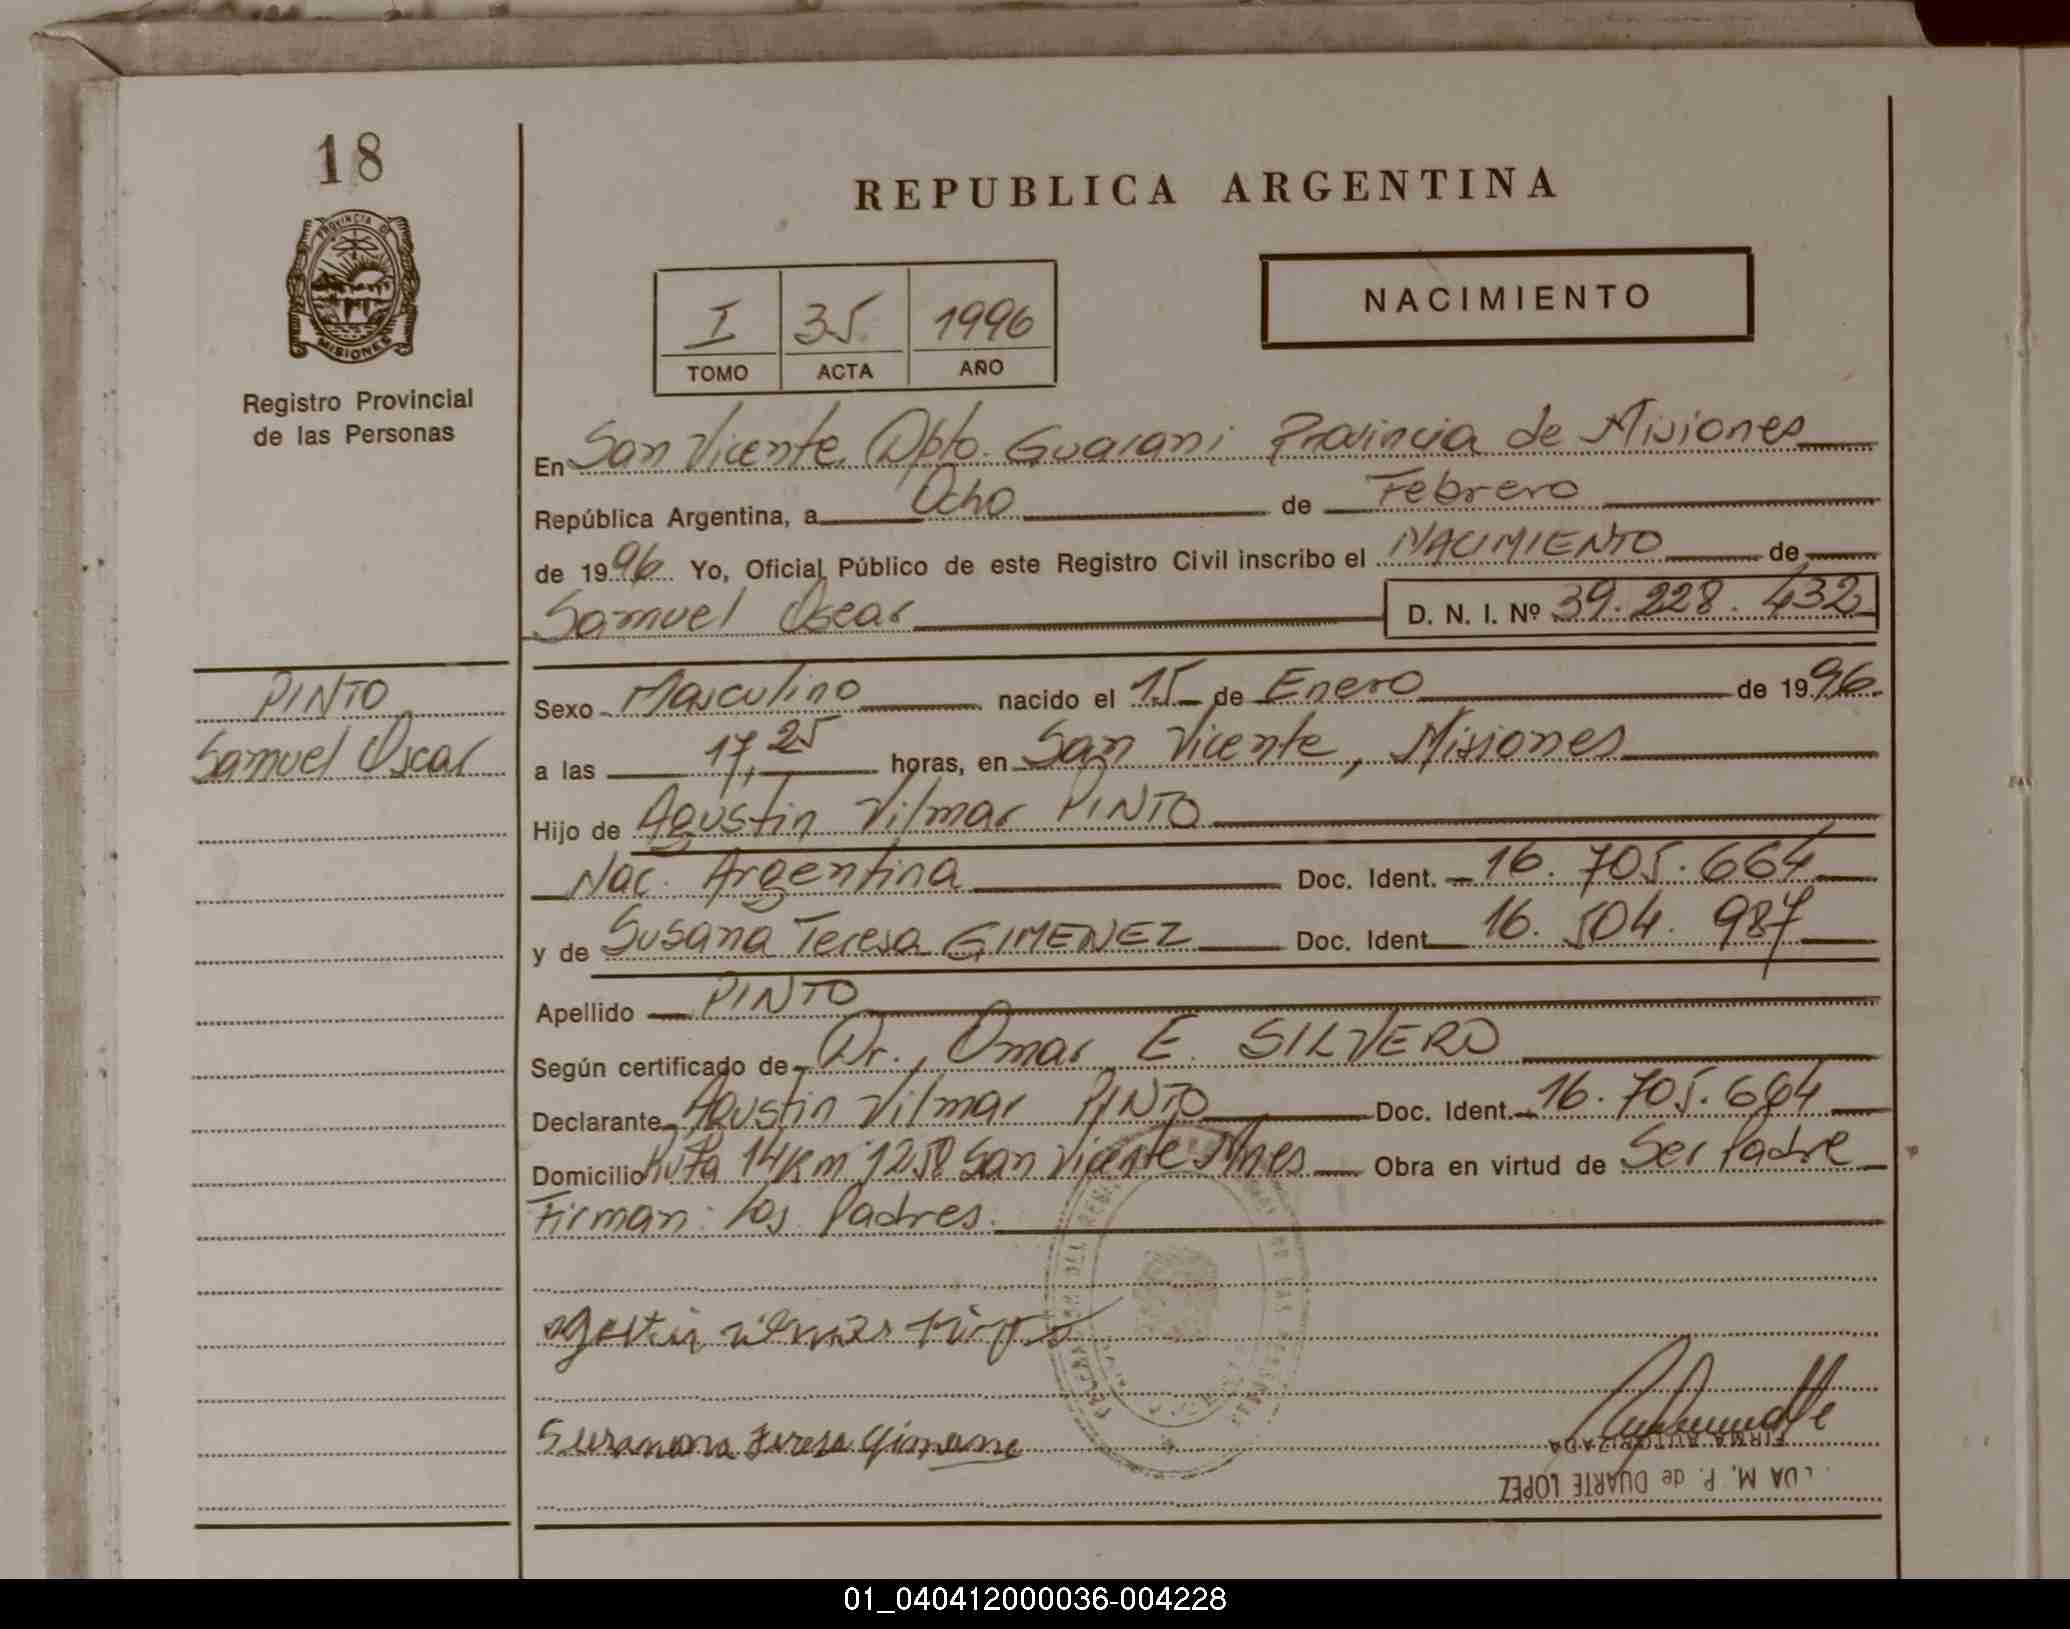 18
PROVINCIA DE
MISIONES
Registro Provincial
de las Personas
REPUBLICA ARGENTINA
I 35 1996
TOMO ACTA AÑO
NACIMIENTO
En San Vicente, Dpto. Guarani Provincia de Misiones
República Argentina, a Ocho de Febrero
de 1996 Yo, Oficial Público de este Registro Civil inscribo el NACIMIENTO de
Samuel Oscar D. N. I. Nº 39.228.432
PINTO
Samuel Oscar
Sexo Masculino nacido el 15 de Enero de 1996
a las 17,25 horas, en San Vicente, Misiones
Hijo de Agustin Vilmar PINTO
Nac. Argentina Doc. Ident. 16.705.664
y de Susana Teresa GIMENEZ Doc. Ident 16.504.987
Apellido PINTO
Según certificado de Dr. Omar E. SILVERO
Declarante Agustin Vilmar PINTO Doc. Ident. 16.705.664
Domicilio Ruta 14 Km 1258 San Vicente Mnes Obra en virtud de Ser Padre
Firman: Los Padres.
agostin vilmar Pinto
Susanana Teresa Gimene
FIRMA AUTORIZADA
M. P. de DUARTE LOPEZ
01_040412000036-004228